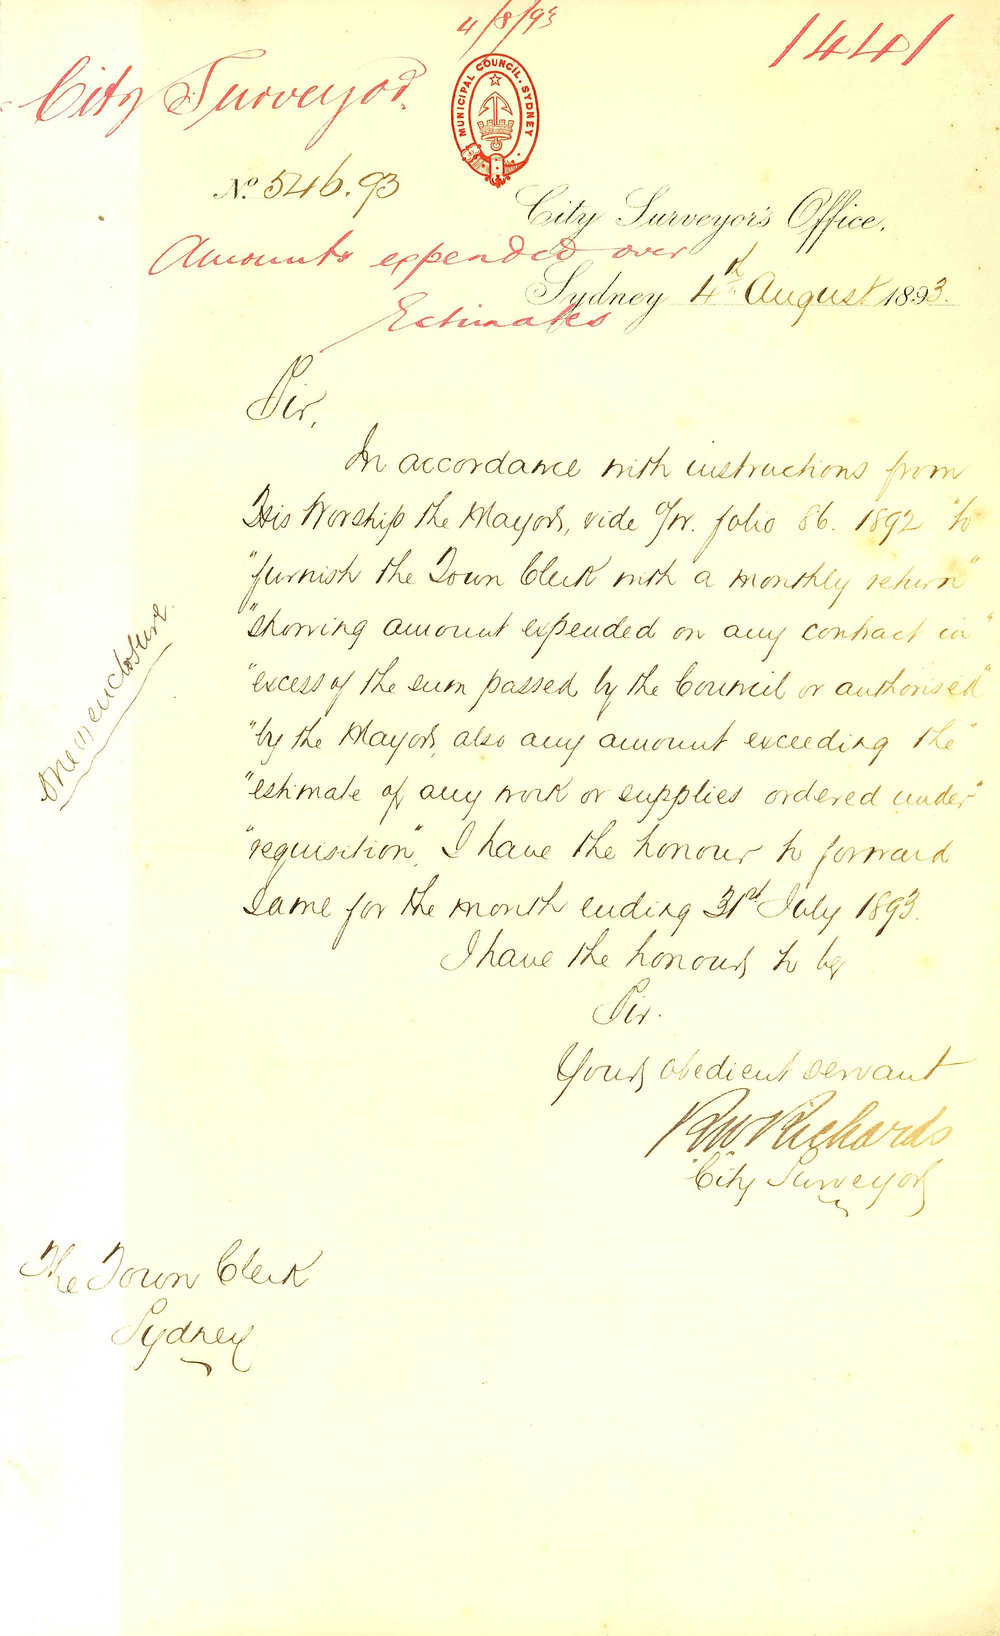 4/8/93
1441
City Surveyor.
MUNICIPAL COUNCIL. SYDNEY
No. 546.93
City Surveyor's Office.
Amounts expended over
Estimates
Sydney 4th August 1893.
Sir,
In accordance with instructions from
His Worship the Mayor, vide folio 86. 1892 "to
"furnish the Town Clerk with a monthly return"
"showing amount expended on any contract in"
"excess of the sum passed by the Council or authorised"
"by the Mayor, also any amount exceeding the"
"estimate of any work or supplies ordered under"
"requisition", I have the honour to forward
same for the month ending 31st July 1893.
I have the honour to be
Sir.
Your obedient servant
RW Richards
City Surveyor
One enclosure
The Town Clerk
Sydney